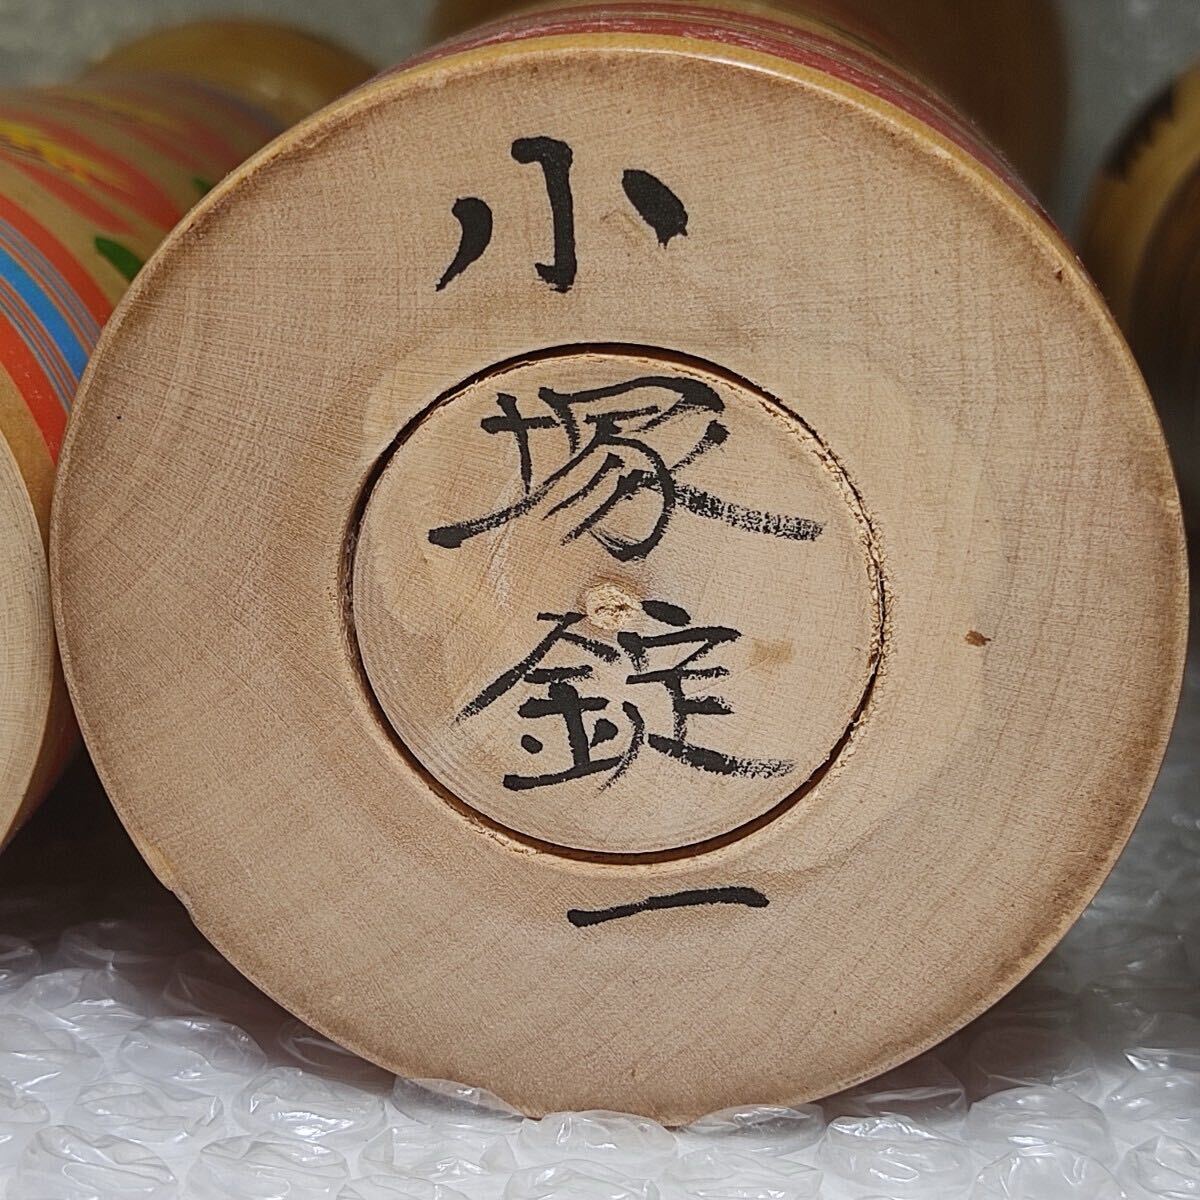 小塚錠一